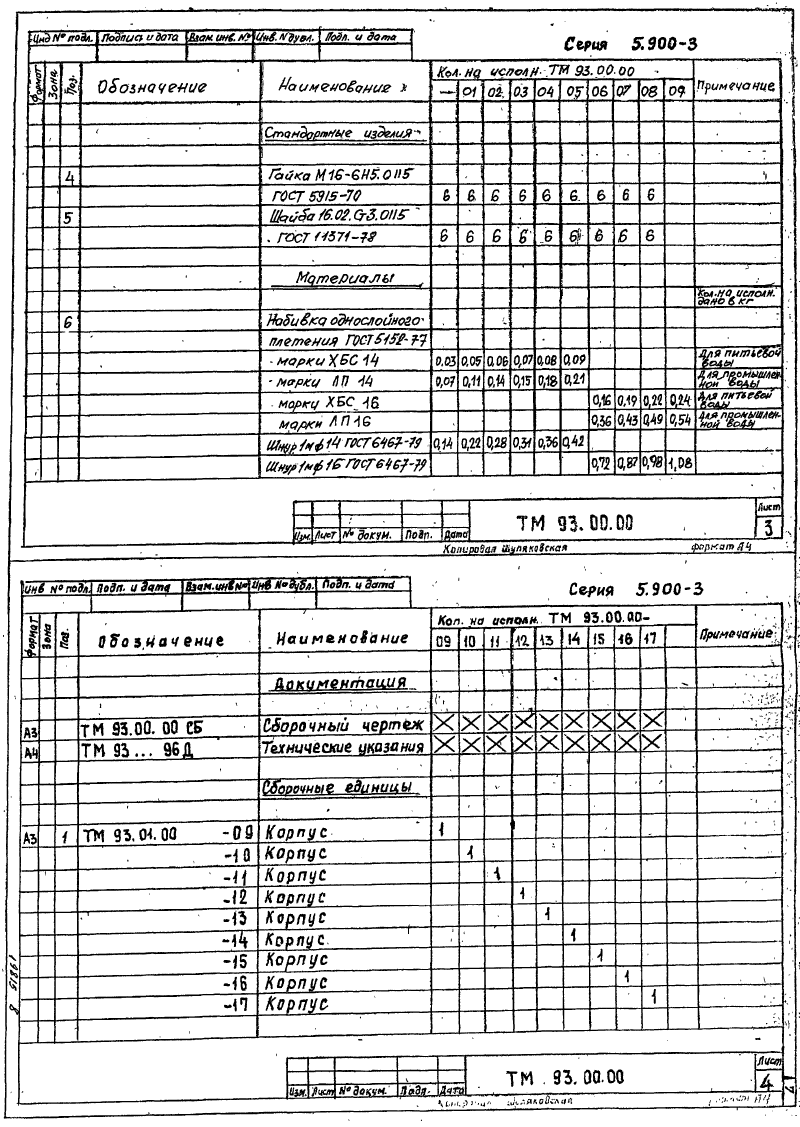 Инв № подл. Подпись и дата Взам. инв. № Инв. № дубл. Подп. и дата
Серия 5.900-3
Формат Зона Поз. Обозначение Наименование Кол. на исполн. ТМ 93.00.00 Примечание
— 01 02 03 04 05 06 07 08 09
Стандартные изделия
4 Гайка М16-6Н5.0115
ГОСТ 5915-70 6 6 6 6 6 6 6 6 6
5 Шайба 16.02.Ст3.0115
ГОСТ 11371-78 6 6 6 6 6 6 6 6 6
Материалы
Кол. на исполн. дано в кг
6 Набивка однослойного
плетения ГОСТ 5152-77
марки ХБС 14 0,03 0,05 0,06 0,07 0,08 0,09 Для питьевой воды
марки ЛП 14 0,07 0,11 0,14 0,15 0,18 0,21 Для промышленной воды
марки ХБС 16 0,16 0,19 0,22 0,24 Для питьевой воды
марки ЛП 16 0,36 0,43 0,49 0,54 Для промышленной воды
Шнур 1мф 14 ГОСТ 6467-79 0,14 0,22 0,28 0,31 0,36 0,42
Шнур 1мф 16 ГОСТ 6467-79 0,72 0,87 0,98 1,08
Изм. Лист № докум. Подп. Дата
ТМ 93.00.00
Лист
3
Копировал Шуляковская формат А4
Инв № подл. Подп. и дата Взам. инв № Инв № дубл. Подп. и дата
Серия 5.900-3
Формат Зона Поз. Обозначение Наименование Кол. на исполн. ТМ 93.00.00- Примечание
09 10 11 12 13 14 15 16 17
Документация
А3 ТМ 93.00.00 СБ Сборочный чертеж X X X X X X X X X
А4 ТМ 93... 96Д Технические указания X X X X X X X X X
Сборочные единицы
А3 1 ТМ 93.01.00 -09 Корпус 1
-10 Корпус 1
-11 Корпус 1
-12 Корпус 1
-13 Корпус 1
-14 Корпус 1
-15 Корпус 1
-16 Корпус 1
-17 Корпус 1
Изм. Лист № докум. Подп. Дата
ТМ 93.00.00
Лист
4